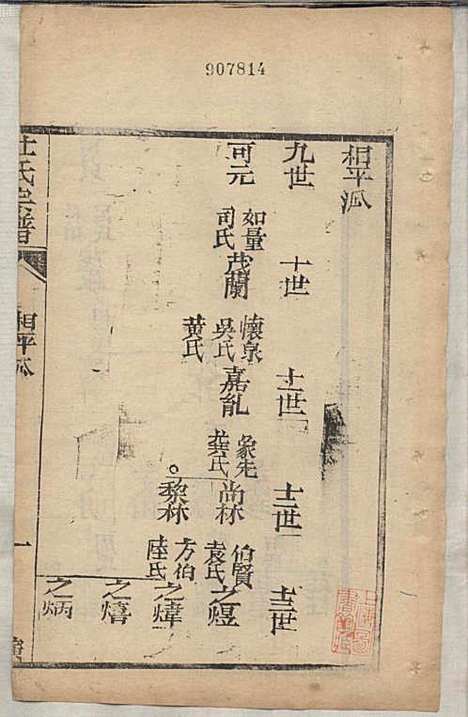 907814
相平派
九世
十世
十一世
十二世
十三世
可元
如量
司氏
茂蘭
懷泉
吳氏
黃氏
嘉胤
象先
龔氏
尚林
伯賢
袁氏
之煜
黎林
方伯
陸氏
之煒
之熺
之炳
杜氏宗譜
相平派
一